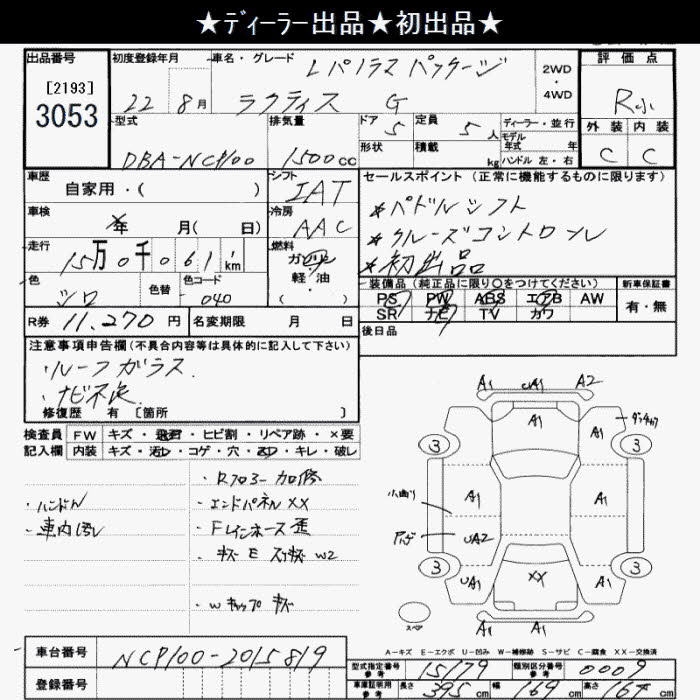 ★ディーラー出品★初出品★
出品番号
[2193]
3053
初度登録年月
22 8月
車名・グレード
Lパノラマパッケージ
ラクティス G
2WD
・
4WD
評価点
R小
外装 内装
C C
型式
DBA-NCP100
排気量
1500cc
ドア 5
形状
定員 5人
積載 kg
ディーラー・並行
モデル年式 年
ハンドル 左・右
車歴
自家用・( )
シフト
IAT
冷房
AAC
車検
年 月( 日)
走行
15万0千061km
燃料
ガソリン
軽・油
( )
色
シロ
色替
色コード
040
R券 11,270円
名変期限 月 日
セールスポイント(正常に機能するものに限ります)
★パドルシフト
★クルーズコントロール
★初出品
装備品(純正品に限り○をつけてください)
PS PW ABS エアB AW
SR ナビ TV カワ
新車保証書
有・無
後日品
注意事項申告欄(不具合内容等は具体的に記入して下さい)
・ルーフガラス
・ナビ不良
修復歴 有 [箇所 ]
検査員 FW キズ・飛石・ヒビ割・リペア跡・×要
記入欄 内装 キズ・汚レ・コゲ・穴・凹・キレ・破レ
・ハンドル
・車内汚レ
・Rフロアー加修
・エンドパネルXX
・Fインナー歪
・キズ E スリキズ W2
・Wキャップキズ
A1 A1 A2
A1 A1 A1
3 3
小曲り
A1 A1
UA2
3 3
UA1 XX A1
スペア
A-キズ E-エクボ U-凹み W-補修跡 S-サビ C-腐食 XX-交換済
車台番号
NCP100-2015819
登録番号
型式指定番号 参考 15179
類別区分番号 参考 0009
車庫証明用 参考 長さ 395cm 幅 169cm 高さ 164cm